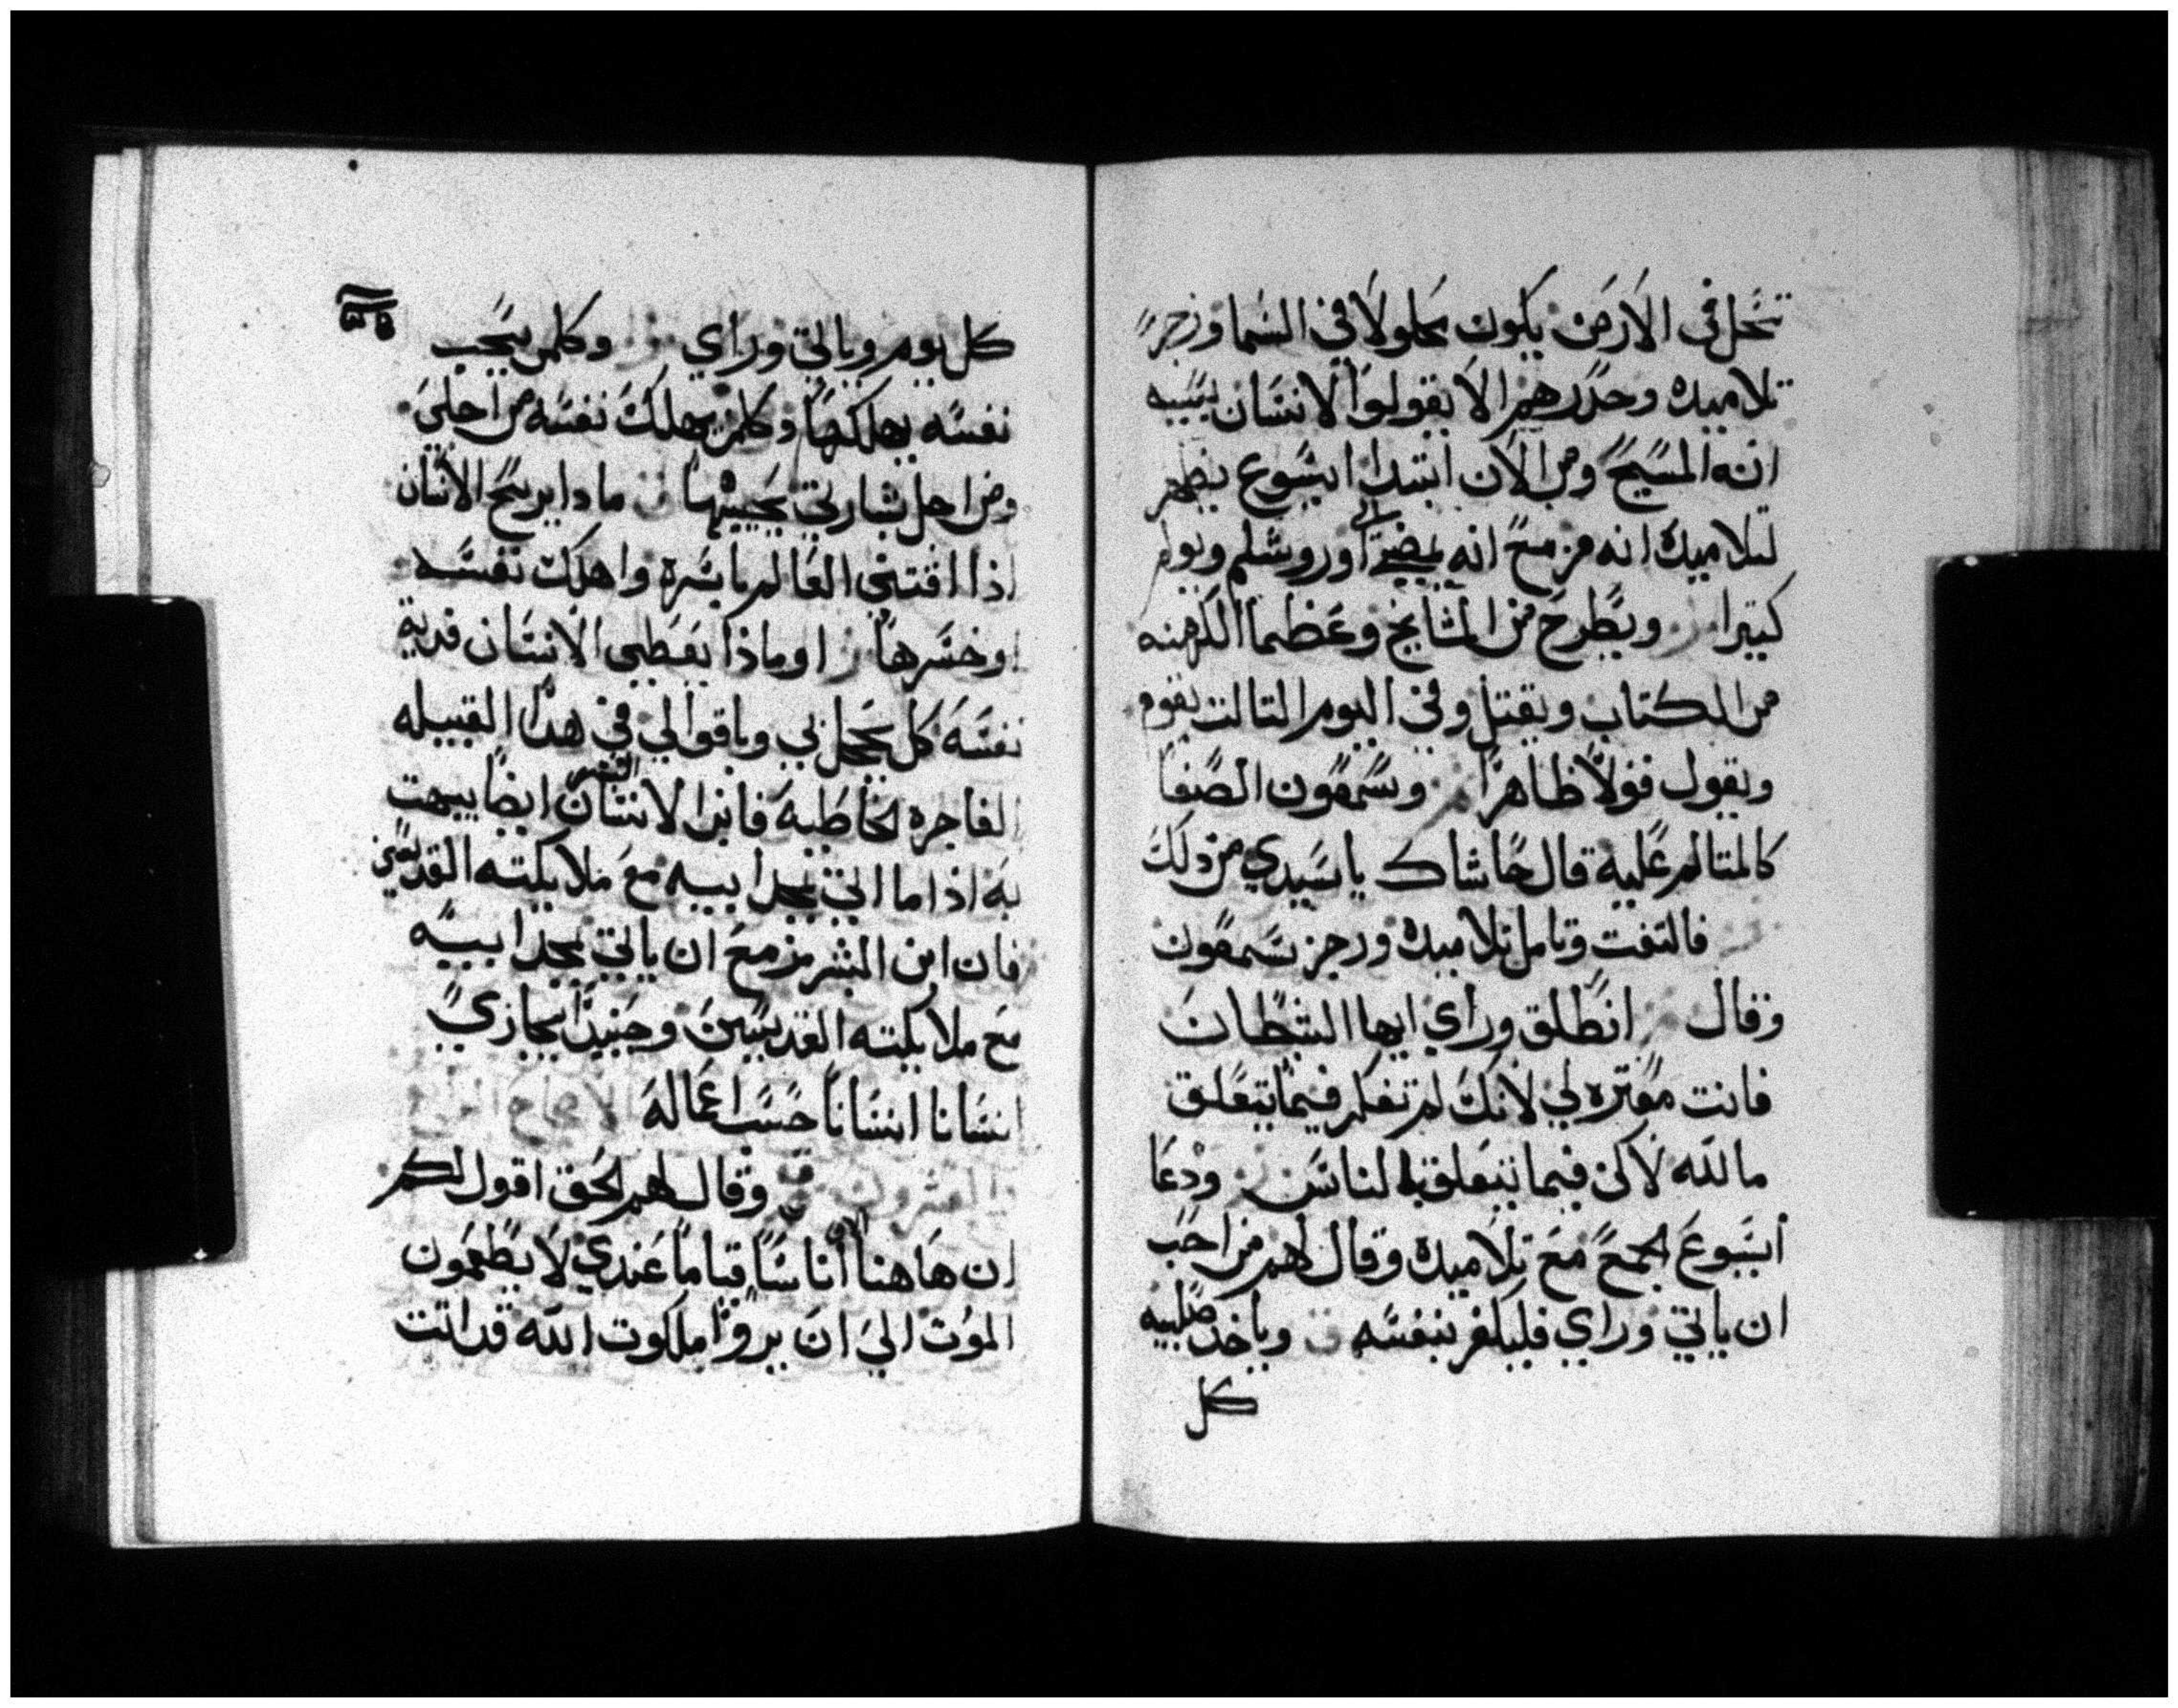 تحل في الارض يكون محلولا في السما وزجر
تلاميده وحدرهم الا يقولوا لانسان بسببه
انه المسيح ومن الان ابتدا ايسوع يظهر
لتلاميده انه مزمع انه يمضي الى اوروشلم ويولم
كتيرا ويطرح من المشايخ وعظما الكهنه
من الكتاب ويقتل وفي اليوم التالت يقوم
ويقول قولا ظاهرا وسمعون الصفا
كالمتالم عليه قال حاشاك يا سيدي من دلك
فالتفت وتامل تلاميده ورجز سمعون
وقال انطلق وراي ايها الشطان
فانت معتره لي لانك لم تفكر فيما يتعلق
ما لله لاكن فيما يتعلق بالناس ودعا
ايسوع الجمع مع تلاميده وقال لهم من احب
ان ياتي وراي فليكفر بنفسه وياخد صليبه
كل
كل يوم وياتي وراي وكلمن يحب
نفسه يهلكها وكلمن يهلك نفسه من اجلي
ومن اجل بشارتي يحييها ما دا يربح الانسان
اذا اقتني العالم باسره واهلك نفسه
او خسرها او ماذا يعطي الانسان فدية
نفسه كل يخجل بي وباقوالي في هدا القبيله
الفاجره الخاطيه فابن الانسان البشر ايضا يبهت
به اذا ما اتي بمجد ابيه مع ملايكته القديسين
فان ابن البشر مزمع ان ياتي بمجد ابيه
مع ملايكته القديسين وحينيدا يجازي
انسانا انسانا حسب اعماله الاصحاح
والعشرون وقال لهم الحق اقول لكم
ان هاهنا الان اناسا قياما عندي لا يطعمون
الموت الي ان يروا ملكوت الله قد اتت